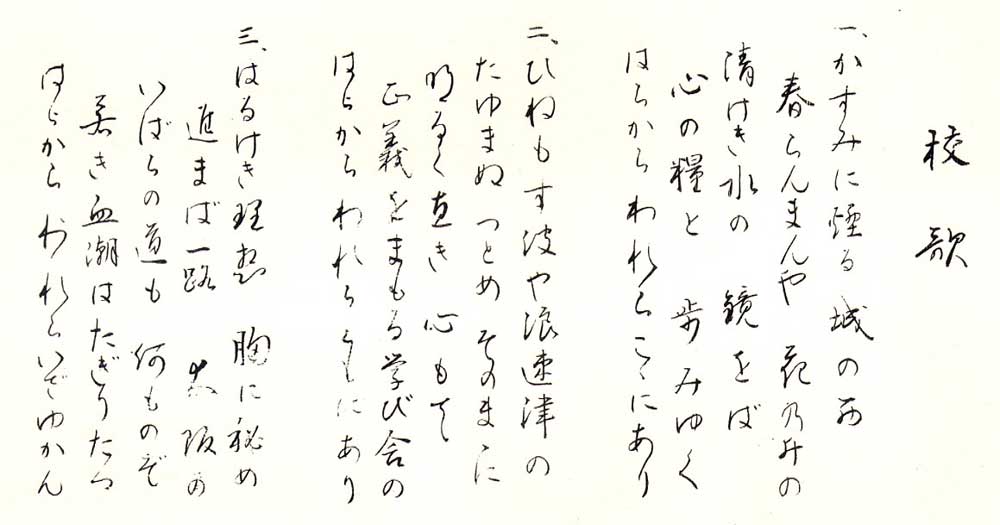 校歌
一、かすみに煙る 城の西
春らんまんや 花乃井の
清けき水の 鏡をば
心の糧と 歩みゆく
はらからわれらこゝにあり
二、ひねもす波や浪速津の
たゆまぬつとめ そのまゝに
明るく直き 心もて
正義をまもる学び舎の
はらからわれらともにあり
三、はるけき理想 胸に秘め
進まば一路 大阪の
いばらの道も 何ものぞ
若き血潮はたぎりたつ
はらからわれらいざゆかん